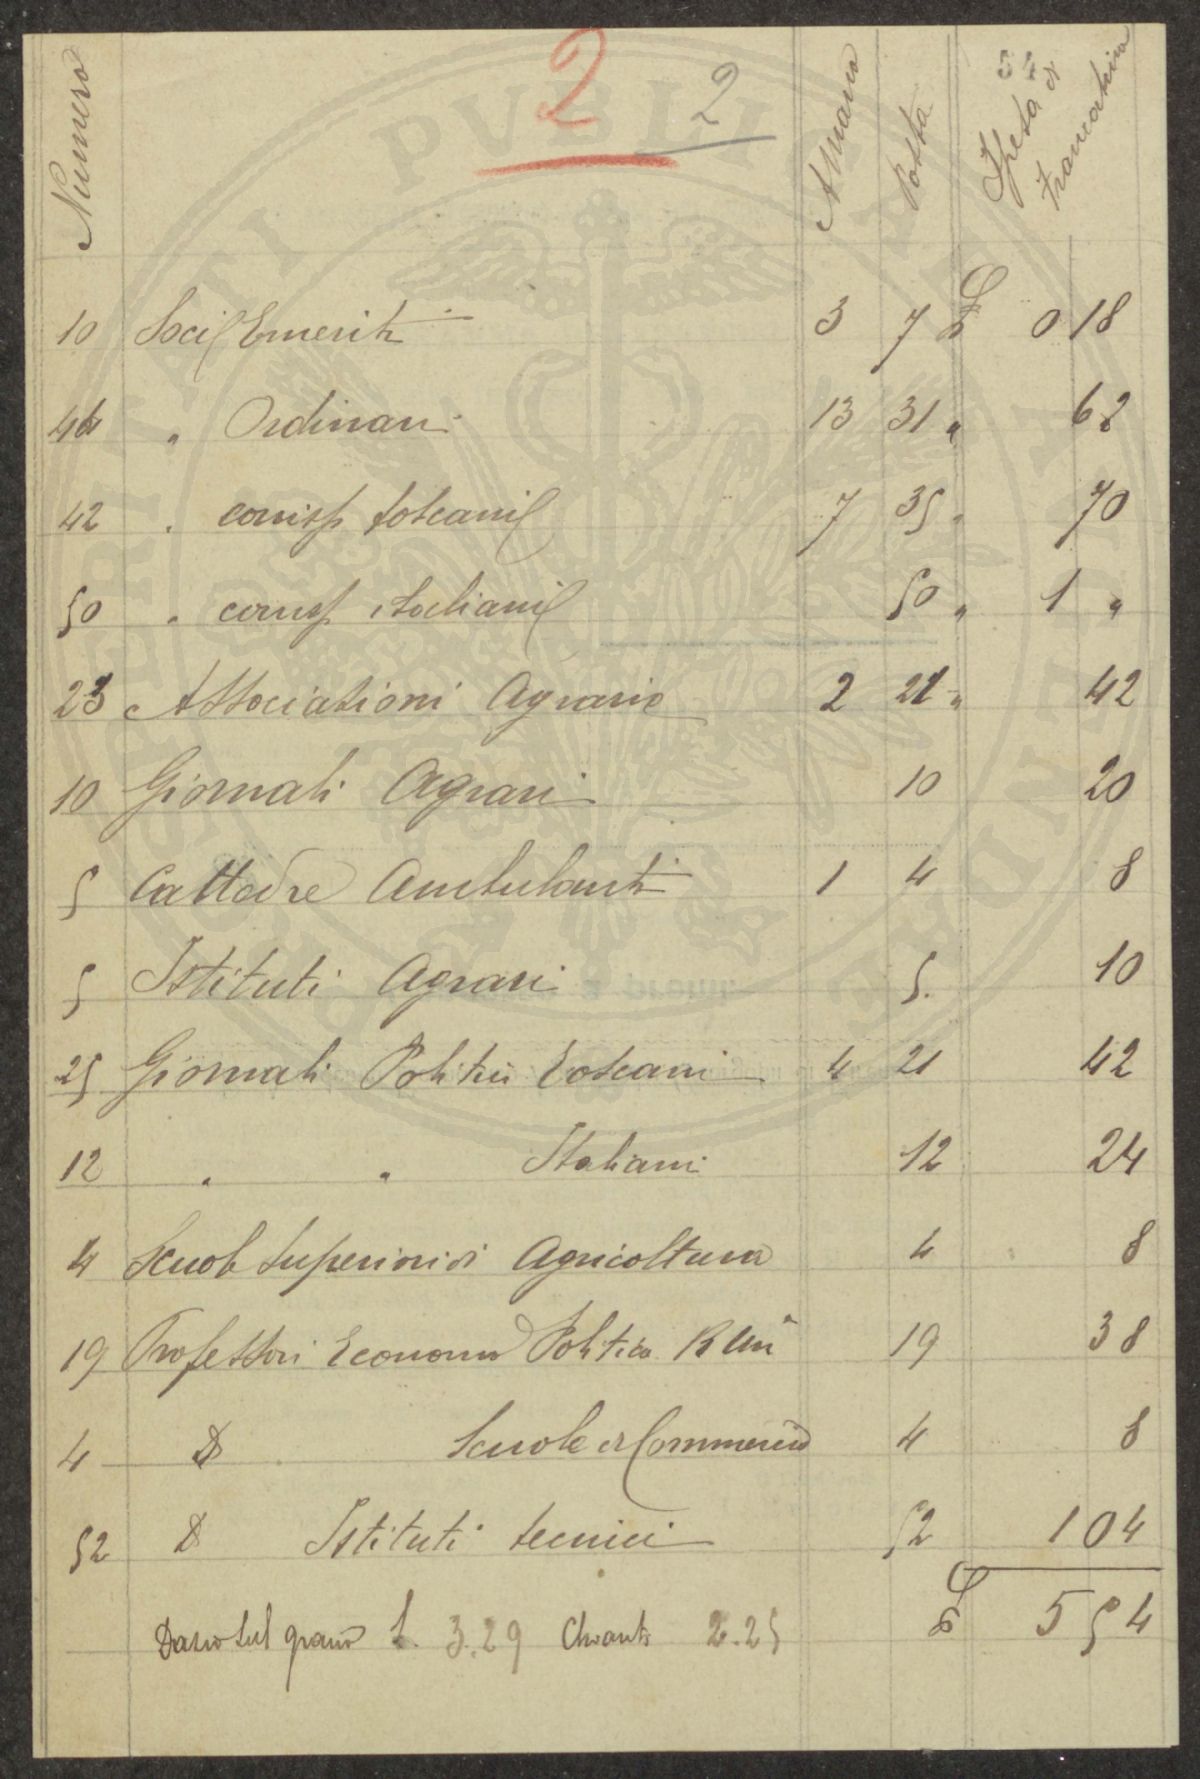 2 2
54
Numero A Mano Posta Spesa di Francatura
10 Socij Emeriti 3 7 £ 0 18
44 " Ordinari 13 31 " 62
42 " corrisp toscanij 7 35 " 70
50 " corrisp italianij 50 " 1 "
23 Associationi Agrarie 2 21 " 42
10 Giornali Agrari 10 20
5 Cattedre Ambulanti 1 4 8
5 Istituti Agrari 5. 10
25 Giornali Politici Toscani 4 21 42
12 " " Italiani 12 24
4 Scuole Superiori di Agricoltura 4 8
19 Professori Economia Politica R Uni 19 38
4 D Scuole di Commercio 4 8
52 D Istituti tecnici 52 1 04
£ 5 54
Dazio sul grano L. 3.29 Chianti 2.25